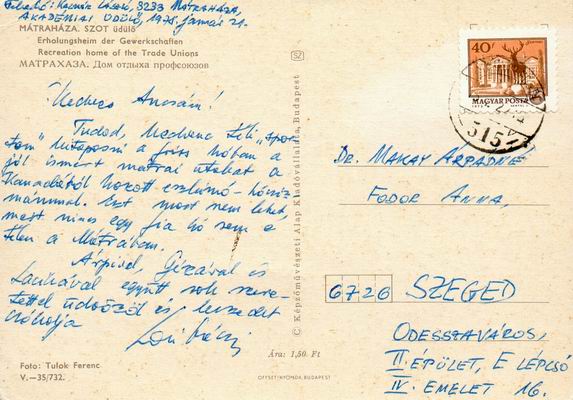 Feladó: Kalmár László, 3233 MÁTRAHÁZA,
AKADÉMIAI ÜDÜLŐ, 1975. január 21.
MÁTRAHÁZA. SZOT üdülő
Erholungsheim der Gewerkschaften
Recreation home of the Trade Unions
МАТРАХАЗА. Дом отдыха профсоюзов
SZ
40 f
MAGYAR POSTA
315
Kedves Ancsám!
Tudod, kedvenc téli "spor-
tom" kitaposni a friss hóban a
jól ismert mátrai utakat a
Kanadából hozott eszkimó-
mammal. Ezt most nem lehet,
mert nincs egy fia hó sem e
télen a Mátrában.
Árpival, Gézával és
Lacikával együtt sok szere-
tettel üdvözöl és
csókolja
Laci bácsi
Dr. MAKAY ÁRPÁDNÉ
FODOR ANNA,
6726 SZEGED
ODESSZAVÁROS,
II. ÉPÜLET, E LÉPCSŐ
IV. EMELET 16.
© Képzőművészeti Alap Kiadóvállalata, Budapest
Ára: 1,50. Ft
Foto: Tulok Ferenc
V.—35/732.
OFFSET-NYOMDA, BUDAPEST